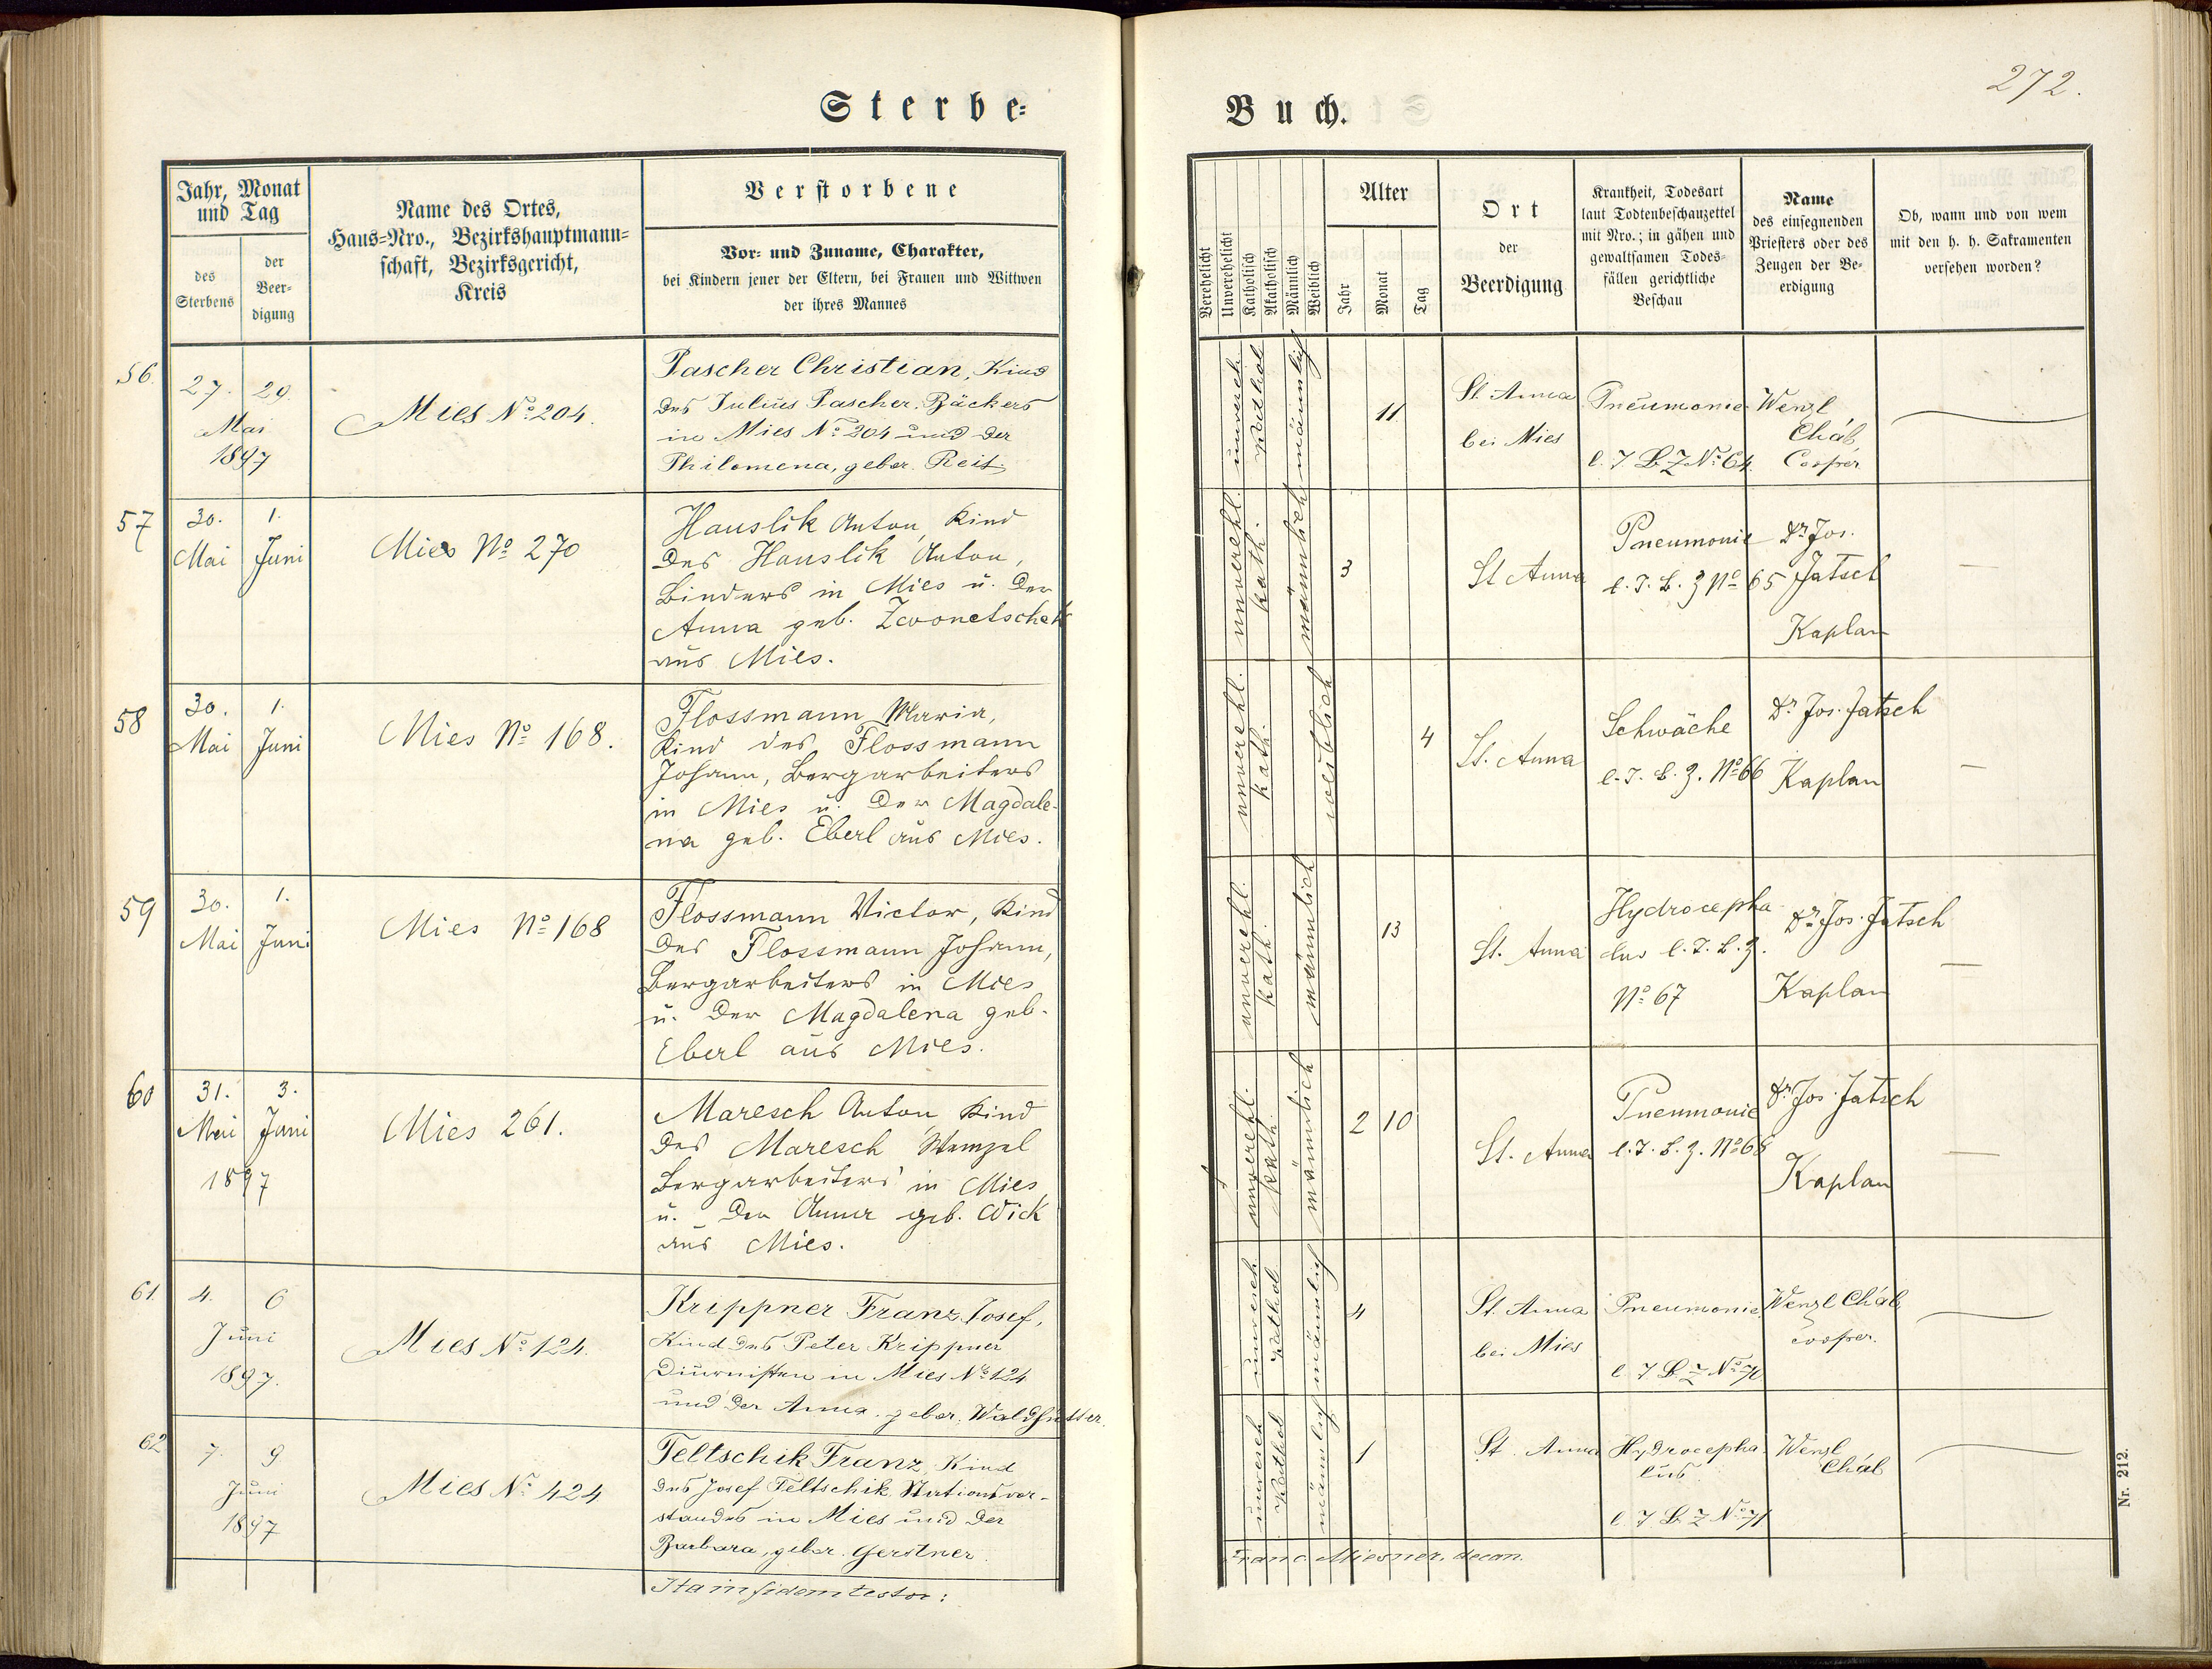 Sterbe-
Buch.
272.
Jahr, Monat
und Tag
des
Sterbens
der
Beer-
digung
Name des Ortes,
Haus-Nro., Bezirkshauptmann-
schaft, Bezirksgericht,
Kreis
Verstorbene
Vor- und Zuname, Charakter,
bei Kindern jener der Eltern, bei Frauen und Wittwen
der ihres Mannes
Verehelicht
Unverehelicht
Katholisch
Akatholisch
Männlich
Weiblich
Alter
Jahr
Monat
Tag
Ort
der
Beerdigung
Krankheit, Todesart
laut Todtenbeschauzettel
mit Nro.; in gähen und
gewaltsamen Todes-
fällen gerichtliche
Beschau
Name
des einsegnenden
Priesters oder des
Zeugen der Be-
erdigung
Ob, wann und von wem
mit den h. h. Sakramenten
versehen worden?
56.
27. 29.
Mai
1897
Mies No 204.
Pascher Christian, Kind
des Julius Pascher, Bäckers
in Mies No 204 und der
Philomena, gebor. Reit
unvereh
Kathol
männlich
11
St. Anna
bei Mies
Pneumonie
l. T B Z No 64.
Wenzl
Cháb,
Cooper.
57
30. 1.
Mai Juni
Mies No 270
Hauslik Anton, Kind
des Hauslik Anton,
Binders in Mies u. der
Anna geb. Zwonetschek
aus Mies.
unverehl.
kath.
männlich
3
St Anna
Pneumonie
l. T. B. Z No 65
Dr Jos.
Jatsch
Kaplan
—
58
30. 1.
Mai Juni
Mies No 168.
Flossmann Maria,
Kind des Flossmann
Johann, Bergarbeiters
in Mies u. der Magdale-
na geb. Eberl aus Mies.
unverehl.
kath.
weiblich
4
St. Anna
Schwäche
l. T. B. Z. No 66
Dr Jos. Jatsch
Kaplan
—
59
30. 1.
Mai Juni
Mies No 168
Flossmann Victor, Kind
des Flossmann Johann,
Bergarbeiters in Mies
u. der Magdalena geb.
Eberl aus Mies.
unverehl.
kath.
männlich
13
St. Anna
Hydrocepha-
lus l. T. B. Z.
No 67
Dr Jos. Jatsch
Kaplan
—
60
31. 3.
Mai Juni
1897
Mies 261.
Maresch Anton, Kind
des Maresch Wenzel
Bergarbeiters in Mies
u. der Anna geb. Wick
aus Mies.
unverehl.
kath.
männlich
2 10
St. Anna
Pneumonie
l. T. B. Z. No 68
Dr Jos. Jatsch
Kaplan
—
61.
4. 6
Juni
1897.
Mies No 124.
Krippner Franz Josef,
Kind des Peter Krippner
Diurnisten in Mies No 124
und der Anna, gebor. Waldhütter.
unvereh
Kathol
männlich
4
St. Anna
bei Mies
Pneumonie
l. T B Z No 70
Wenzl Cháb,
cooper.
62
7. 9
Juni
1897
Mies No 424
Teltschik Franz Kind
des Josef Teltschik, Stationsvor-
standes in Mies und der
Barbara, gebor. Gerstner.
unvereh
Kathol
männlich
1
St. Anna
Hydrocepha-
lus.
l. T B Z No 71
Wenzl
Cháb
Ita in fidem testor:
Franc. Miesner, decan.
Nr. 212.